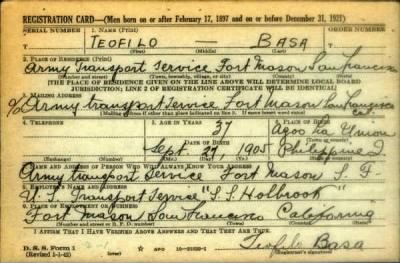 REGISTRATION CARD—(Men born on or after February 17, 1897 and on or before December 31, 1921)
SERIAL NUMBER 1. NAME (Print) ORDER NUMBER
TEOFILO — BASA
(First) (Middle) (Last)
2. PLACE OF RESIDENCE (Print)
Army Transport Service Fort Mason San Francisco
(Number and street) (Town, township, village, or city) (County) (State)
[THE PLACE OF RESIDENCE GIVEN ON THE LINE ABOVE WILL DETERMINE LOCAL BOARD
JURISDICTION; LINE 2 OF REGISTRATION CERTIFICATE WILL BE IDENTICAL]
3. MAILING ADDRESS
c/o Army transport Service Fort Mason San Francisco
Ca.
[Mailing address if other than place indicated on line 2. If same insert word same]
4. TELEPHONE 5. AGE IN YEARS 6. PLACE OF BIRTH
37 Agoo La Union
DATE OF BIRTH (Town or county)
Sept. 27, 1905 Philippine I
(Exchange) (Number) (Mo.) (Day) (Yr.) (State or country)
7. NAME AND ADDRESS OF PERSON WHO WILL ALWAYS KNOW YOUR ADDRESS
Army transport Service Fort Mason S. F.
8. EMPLOYER'S NAME AND ADDRESS
U. S. Transport Service "S.S. Holbrook"
9. PLACE OF EMPLOYMENT OR BUSINESS
Fort Mason San Francisco California
(Number and street or R. F. D. number) (Town) (County) (State)
I AFFIRM THAT I HAVE VERIFIED ABOVE ANSWERS AND THAT THEY ARE TRUE.
D. S. S. Form 1
(Revised 1-1-42) GPO Teofilo Basa
(Registrant's signature)